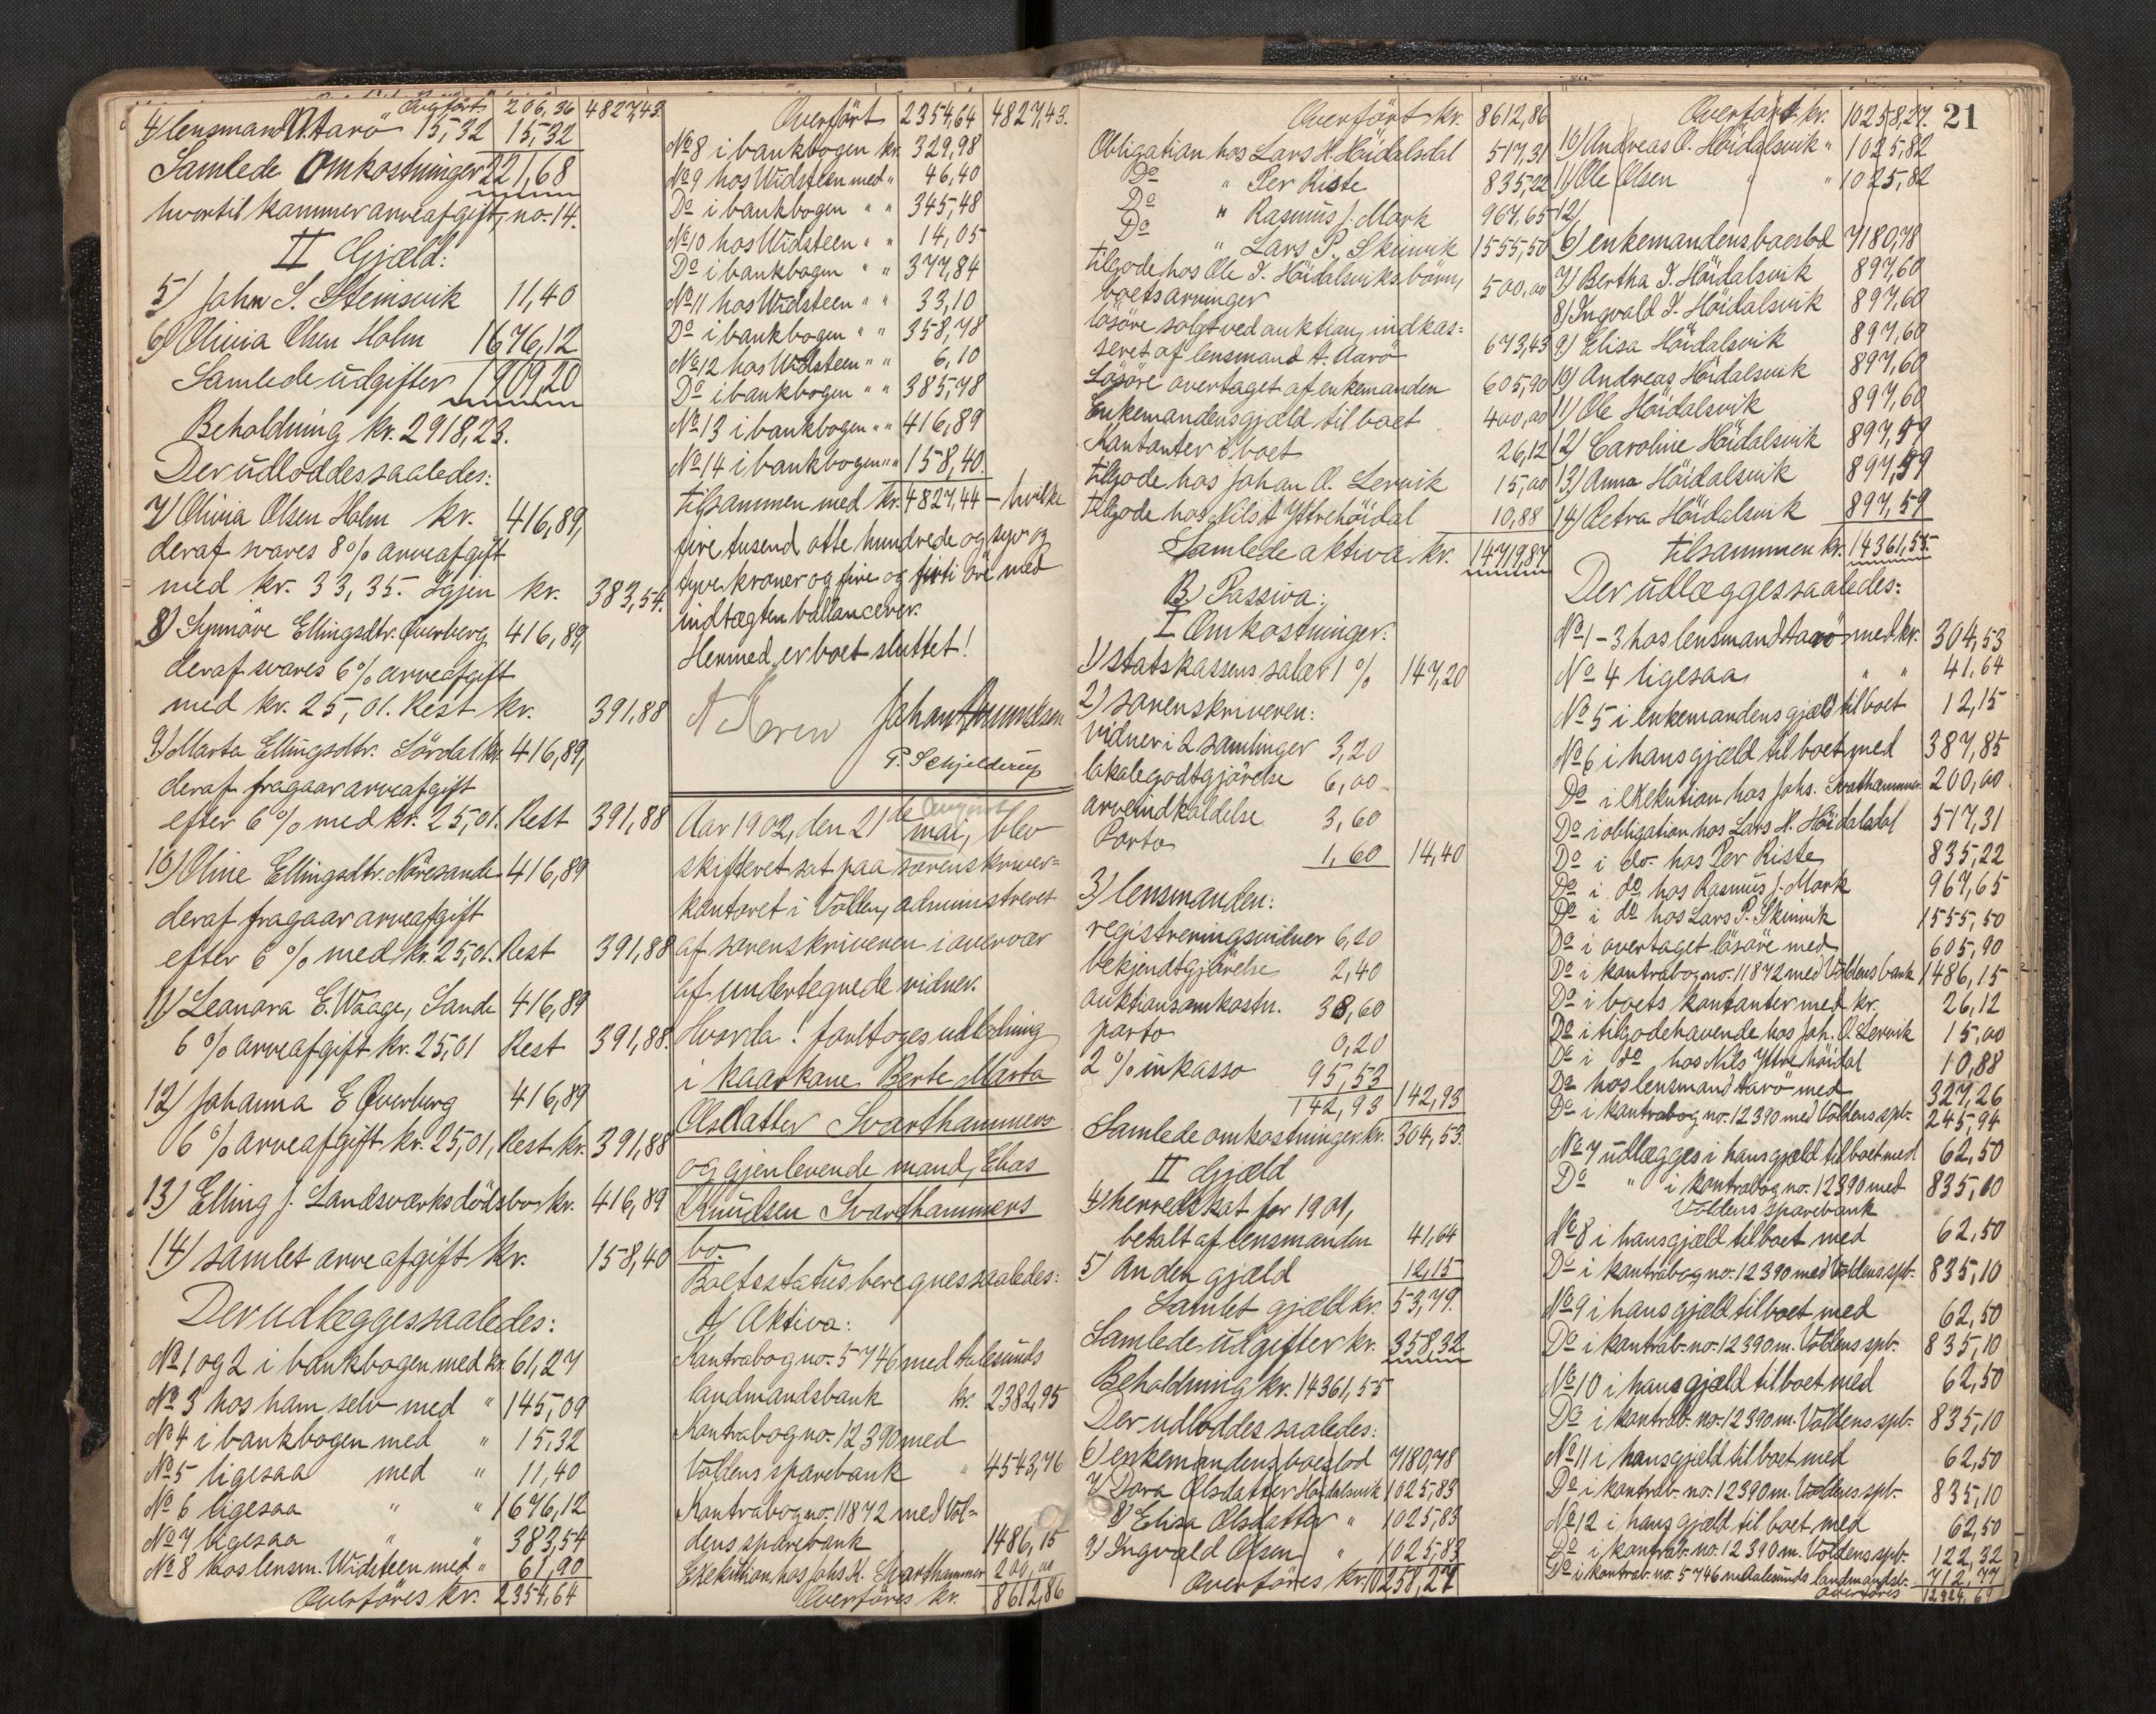 Overført 206,36 4827,43.
4) lensmand A. Aarö 15,32 15,32
Samlede Omkostninger 221,68
hvortil kammer arveafgift, no. 14.
II Gjæld:
5) Johan S. Steinsvik 11,40
6) Olivia Olsen Holm 1676,12
Samlede udgifter 1909,20
Beholdning kr. 2918,23.
Der udloddes saaledes:
7) Olivia Olsen Holm kr. 416,89,
deraf svares 8% arveafgift
med kr. 33,35. Igjen kr. 383,54.
8) Synnöve Ellingsdtr. Överberg 416,89,
deraf svares 6% arveafgift
med kr. 25,01. Rest kr. 391,88
9) Marta Ellingsdtr. Sördal kr. 416,89,
deraf fragaar arveafgift
efter 6% med kr. 25,01. Rest 391,88
10) Oline Ellingsdtr. Nöresande 416,89
deraf fragaar arveafgift
efter 6% med kr. 25,01. Rest 391,88
11) Leanara E. Waage, Sande 416,89
6% arveafgift kr. 25,01 Rest 391,88.
12) Johanna E Överberg 416,89
6% arveafgift kr. 25,01, Rest kr. 391,88
13) Elling J. Landsværks dödsbo kr. 416,89
14) samlet arveafgift kr. 158,40
Der udlægges saaledes:
No 1 og 2 i bankbogen med kr. 61,27
No 3 hos ham selv med " 145,09
No 4 i bankbogen med " 15,32
No 5 ligesaa med " 11,40
No 6 ligesaa " " 1676,12
No 7 ligesaa " " 383,54
No 8 hos lensm. Widsteen med " 61,90
Overføres kr. 2354,64
Overført 2354,64 4827,43.
No 8 i bankbogen kr. 329,98
No 9 hos Widsteen med " 46,40
Do i bankbogen " " 345,48
No 10 hos Widsteen " " 14,05
Do i bankbogen " " 377,84
No 11 hos Widsteen " " 33,10
Do i bankbogen " " 358,78
No 12 hos Widsteen " " 6,10
Do i bankbogen " " 385,78
No 13 i bankbogen " " 416,89
No 14 i bankbogen " " 158,40.
tilsammen med kr. 4827,44 – hvilke
fire tusend otte hundrede og syv og
tyve kroner og fire og firti öre med
indtægten ballancerer.
Hermed er boet sluttet!
Johan Amundsen
P. Schjelderup
Aar 1902, den 21de mai, august blev
skifteret sat paa sorenskriver=
kontoret i Volden, administreret
af sorenskriveren i overvær
af undertegnede vidner.
Hvorda! foretoges udlodning
i kaarkone Berte Marta
Olsdatter Svarthammers
og gjenlevende mand, Elias
Knudsen Svarthammers
bo.
Boets status beregnes saaledes:
A/ Aktiva:
Kontrabog no. 5746 med Aalesunds
landmandsbank kr. 2382,95
Kontrabog no. 12390 med
Voldens sparebank " 4543,76
Kontrabog no. 11872 med Vol=
dens sparebank 1486,15
Exekution hos Johs K. Svarthammer 200,00
Overføres kr. 8612,86
Overført kr. 8612,86
Obligation hos Lars H. Höidalsdal 517,31
Do " Per Riste 835,22
Do " Rasmus J. Mork 967,65
Do " Lars P. Skinvik 1555,50
tilgode hos Ole I. Höidalsviks börn,
boets arvinger 500,00
lösöre solgt ved auktion, indkas=
seret af lensmand A. Aarö 673,43
Lösöre overtaget af enkemanden 605,90
Enkemandens gjæld til boet 400,00
Kontanter i boet 26,12
tilgode hos Johan O. Lervik 15,00
tilgode hos Nils A Yttrehöidal 10,88
Samlede aktiva kr. 14719,87
B) Passiva:
I Omkostninger:
1) statskassens salær 1% 147,20
2) sorenskriveren:
vidner i 2 samlinger 3,20
lokalegodtgjörelse 6,00
arveindkaldelse 3,60
Porto 1,60 14,40
3) lensmanden:
registreringsvidner 6,20
bekjendtgjörelse 2,40
auktionsomkostn. 38,60
porto 0,20
2% inkasso 95,53
142,93 142,93
Samlede omkostninger kr. 304,53.
II Gjæld
4) herredskat for 1901,
betalt af lensmanden 41,64
5) Anden gjæld 12,15
Samlet gjæld kr. 53,79.
Samlede udgifter kr. 358,32
Beholdning kr. 14361,55
Der udloddes saaledes:
6) enkemandens boeslod 7180,78
7) Dora Olsdatter Höidalsvik 1025,83
8) Elisa Olsdatter " 1025,83
9) Ingvald Olsen " 1025,83
Overføres kr. 10258,27
Overført kr. 10258,27. 21
10) Andreas O. Höidalsvik " 1025,82
11) Ole Olsen " " 1025,82
12)
6) enkemandens boeslod 7180,78
7) Bertha I. Höidalsvik 897,60
8) Ingvald I. Höidalsvik 897,60
9) Elisa Höidalsvik 897,60
10) Andreas Höidalsvik 897,60
11) Ole Höidalsvik 897,60
12) Caroline Höidalsvik 897,59
13) Anna Höidalsvik 897,59
14) Petra Höidalsvik 897,59
tilsammen kr. 14361,55.
Der udlægges saaledes:
No 1–3 hos lensmand Aarö med kr. 304,53
No 4 ligesaa " " 41,64
No 5 i enkemandens gjæld til boet 12,15
No 6 i hans gjæld til boet med 387,85
Do i exekution hos Johs. Svarthammer 200,00
Do i obligation hos Lars H. Höidalsdal 517,31
Do i do. hos Per Riste 835,22
Do i do hos Rasmus J. Mork 967,65
Do i do hos Lars P. Skinvik 1555,50
Do i overtaget lösöre med 605,90
Do i kontrabog no. 11872 med Voldens bank 1486,15
Do i boets kontanter med kr. 26,12
Do i tilgodehavende hos Joh. O. Lervik 15,00
Do i do hos Nils Yttrehöidal 10,88
Do hos lensmand Aarö med 327,26
Do i kontrabog no. 12390 med Voldens spb. 245,94
No 7 udlægges i hans gjæld til boet med 62,50
Do " i kontrabog no. 12390 med 835,10
Voldens sparebank
No 8 i hans gjæld til boet med 62,50
Do i kontrabog no. 12390 med Voldens spb. 835,10
No 9 i hans gjæld til boet med 62,50
Do i kontrab. no. 12390 m. Voldens spb. 835,10
No 10 i hans gjæld til boet med 62,50
Do i kontrab. no. 12390 m. Voldens spb. 835,10
No 11 i hans gjæld til boet med 62,50
Do i kontrab. no. 12390 m. Voldens spb. 835,10
No 12 i hans gjæld til boet med 62,50
Do i kontrab. no. 12390 m. Voldens spb. 122,32
Do i kontrab. no. 5746 m. Aalesunds landmandsb. 712,77
Overføres 12924,69